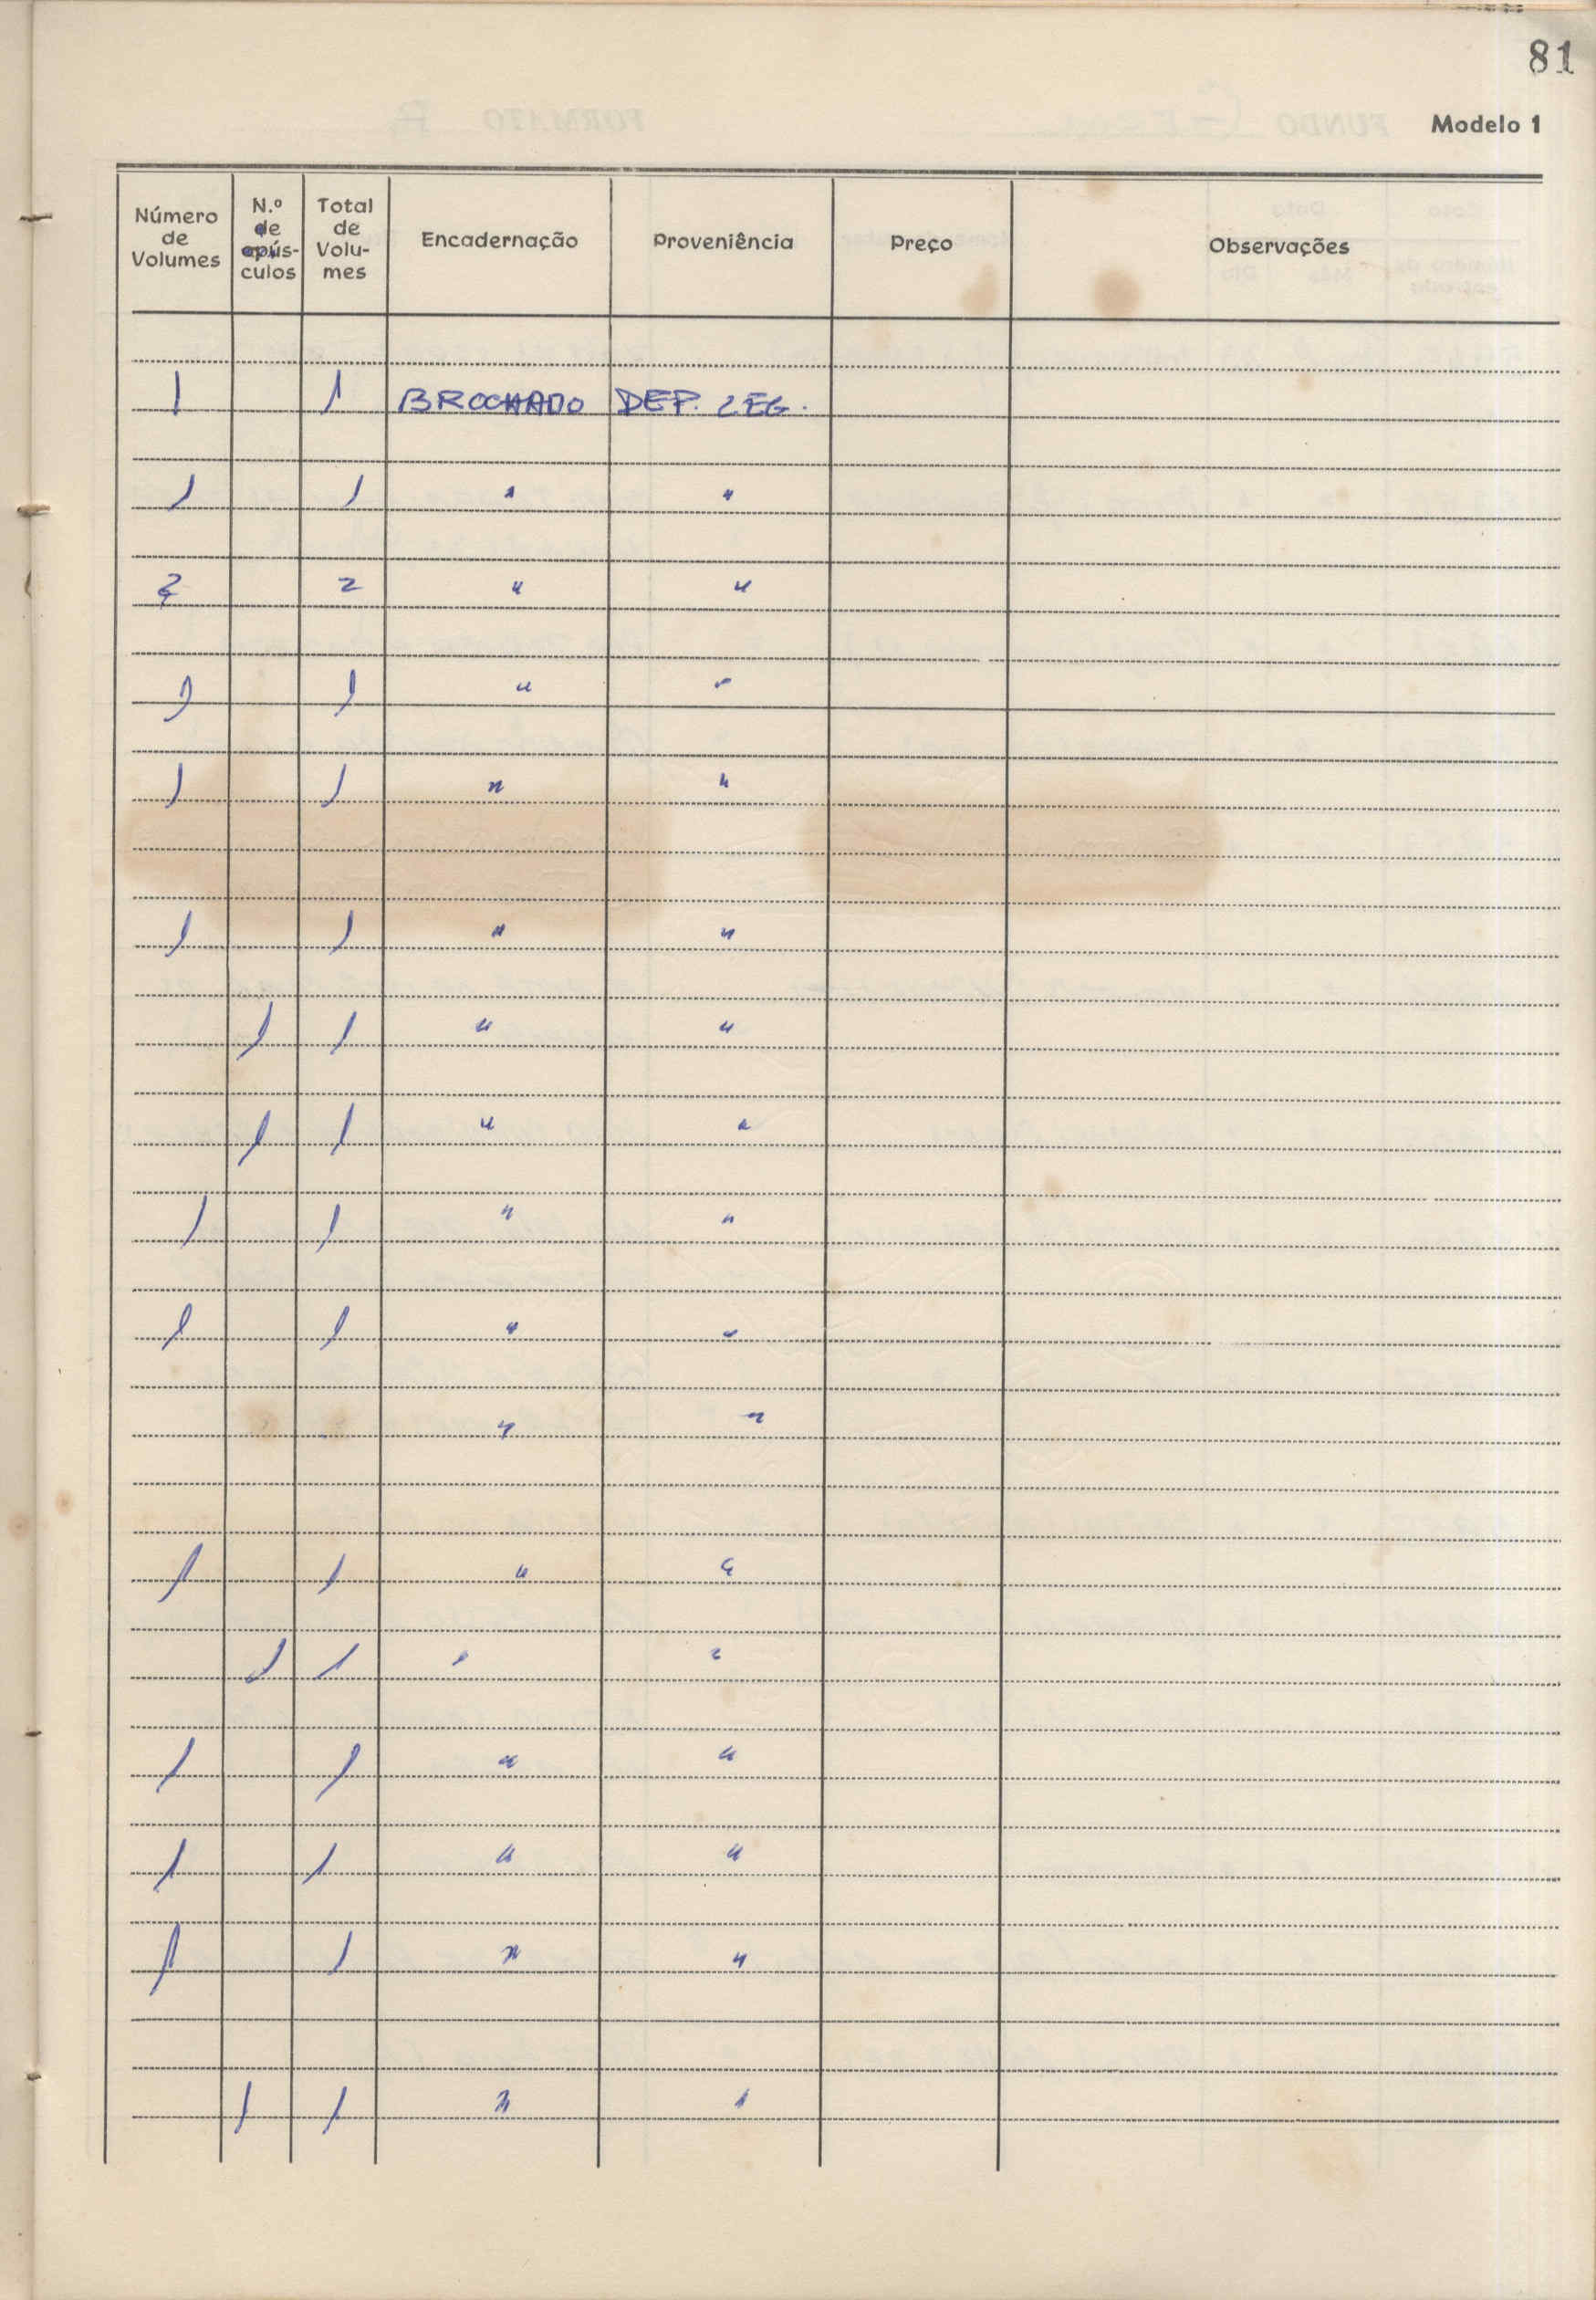 81
Modelo 1
Número de Volumes N.º de opús-culos Total de Volu-mes Encadernação Proveniência Preço Observações
1 1 BROCHADO DEP. LEG.
1 1 " "
2 2 " "
1 1 " "
1 1 " "
1 1 " "
1 1 " "
1 1 " "
1 1 " "
1 1 " "
" "
1 1 " "
1 1 " "
1 1 " "
1 1 " "
1 1 " "
1 1 " "